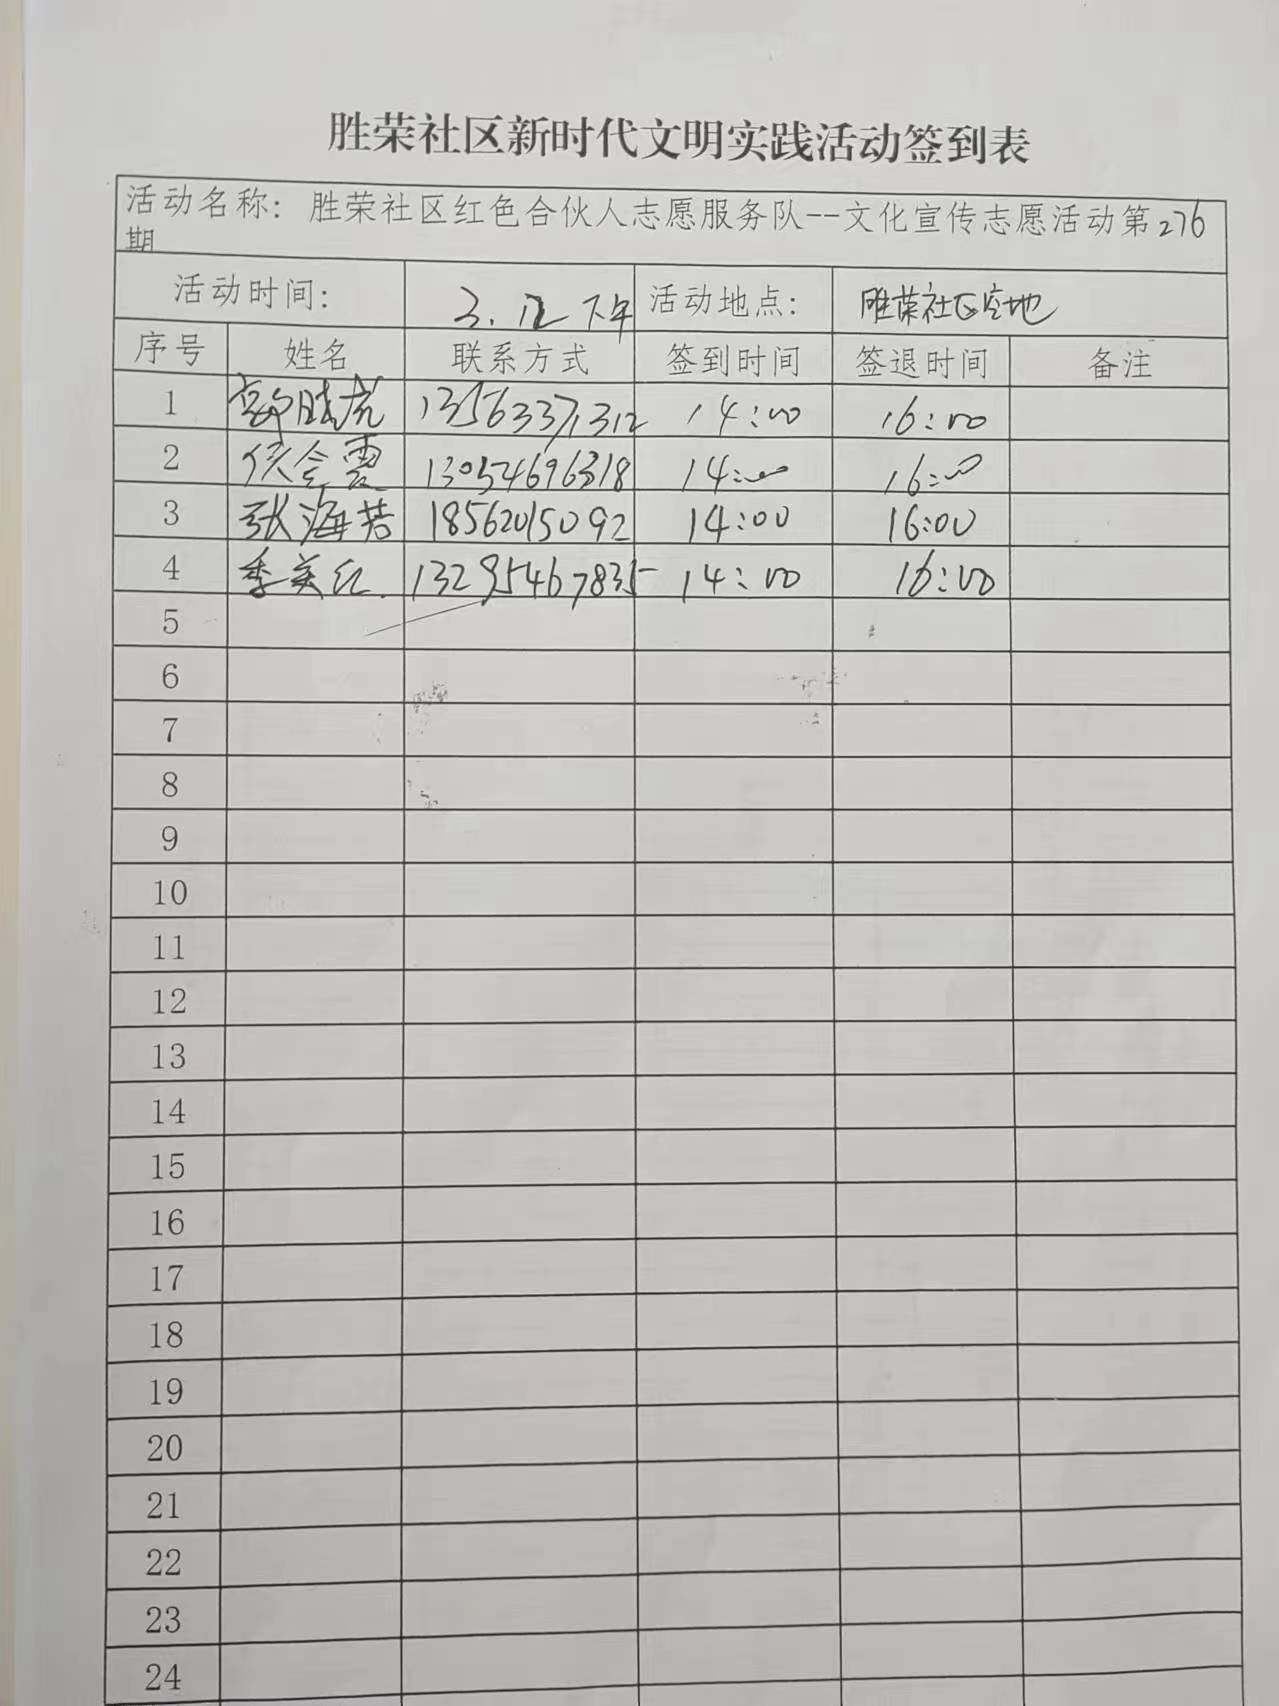 胜荣社区新时代文明实践活动签到表
活动名称：胜荣社区红色合伙人志愿服务队--文化宣传志愿活动第276
期
活动时间： 3.12 下午 活动地点： 胜荣社区空地
序号 姓名 联系方式 签到时间 签退时间 备注
1 郭胜虎 13563371312 14:00 16:00
2 侯会霞 13054696318 14:00 16:00
3 张海芸 18562015092 14:00 16:00
4 季美红 13295467835 14:00 16:00
5
6
7
8
9
10
11
12
13
14
15
16
17
18
19
20
21
22
23
24